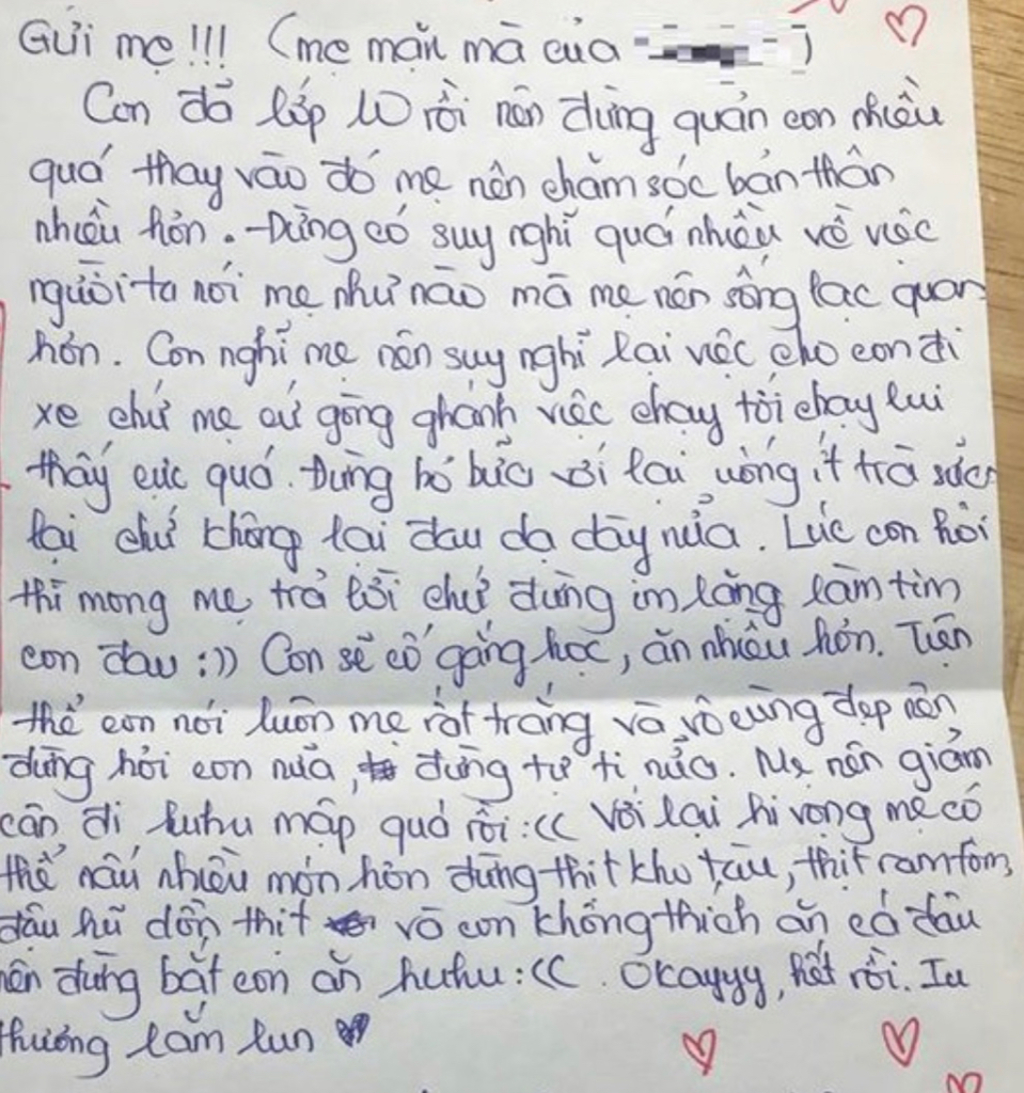 Gửi mẹ!!! (mẹ mặn mà của )
Con đã lớp 10 rồi nên đừng quản con nhiều
quá thay vào đó mẹ nên chăm sóc bản thân
nhiều hơn. Đừng có suy nghĩ quá nhiều về việc
người ta nói mẹ như nào mà mẹ nên sống lạc quan
hơn. Con nghĩ mẹ nên suy nghĩ lại việc cho con đi
xe chứ mẹ cứ gồng ghánh việc chạy tới chạy lui
thấy cực quá. Đừng bỏ bữa với lại uống ít trà sữa
lại chứ không lại đau dạ dày nửa. Lúc con hỏi
thì mong mẹ trả lời chứ đừng im lặng làm tim
con đau :)) Con sẽ cố gắng học, ăn nhiều hơn. Tiện
thể con nói luôn mẹ rất trắng và vô cùng đẹp nên
đừng hỏi con nữa, đừng tự ti nữa. Mẹ nên giảm
cân đi huhu mập quá rồi :(( Với lại hi vọng mẹ có
thể nấu nhiều món hơn đừng thịt kho tàu, thịt ram tôm,
đậu hũ dồn thịt và con không thích ăn cá đâu
nên đừng bắt con ăn huhu :((. Okayyy, hết rồi. Iu
thương lắm lun